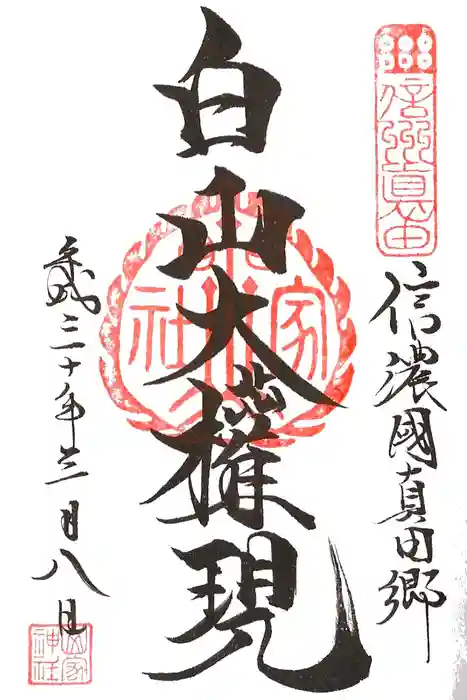 信州真田
信濃國真田郷
白山大權現
山家
神社
平成三十年三月八日
山家
神社